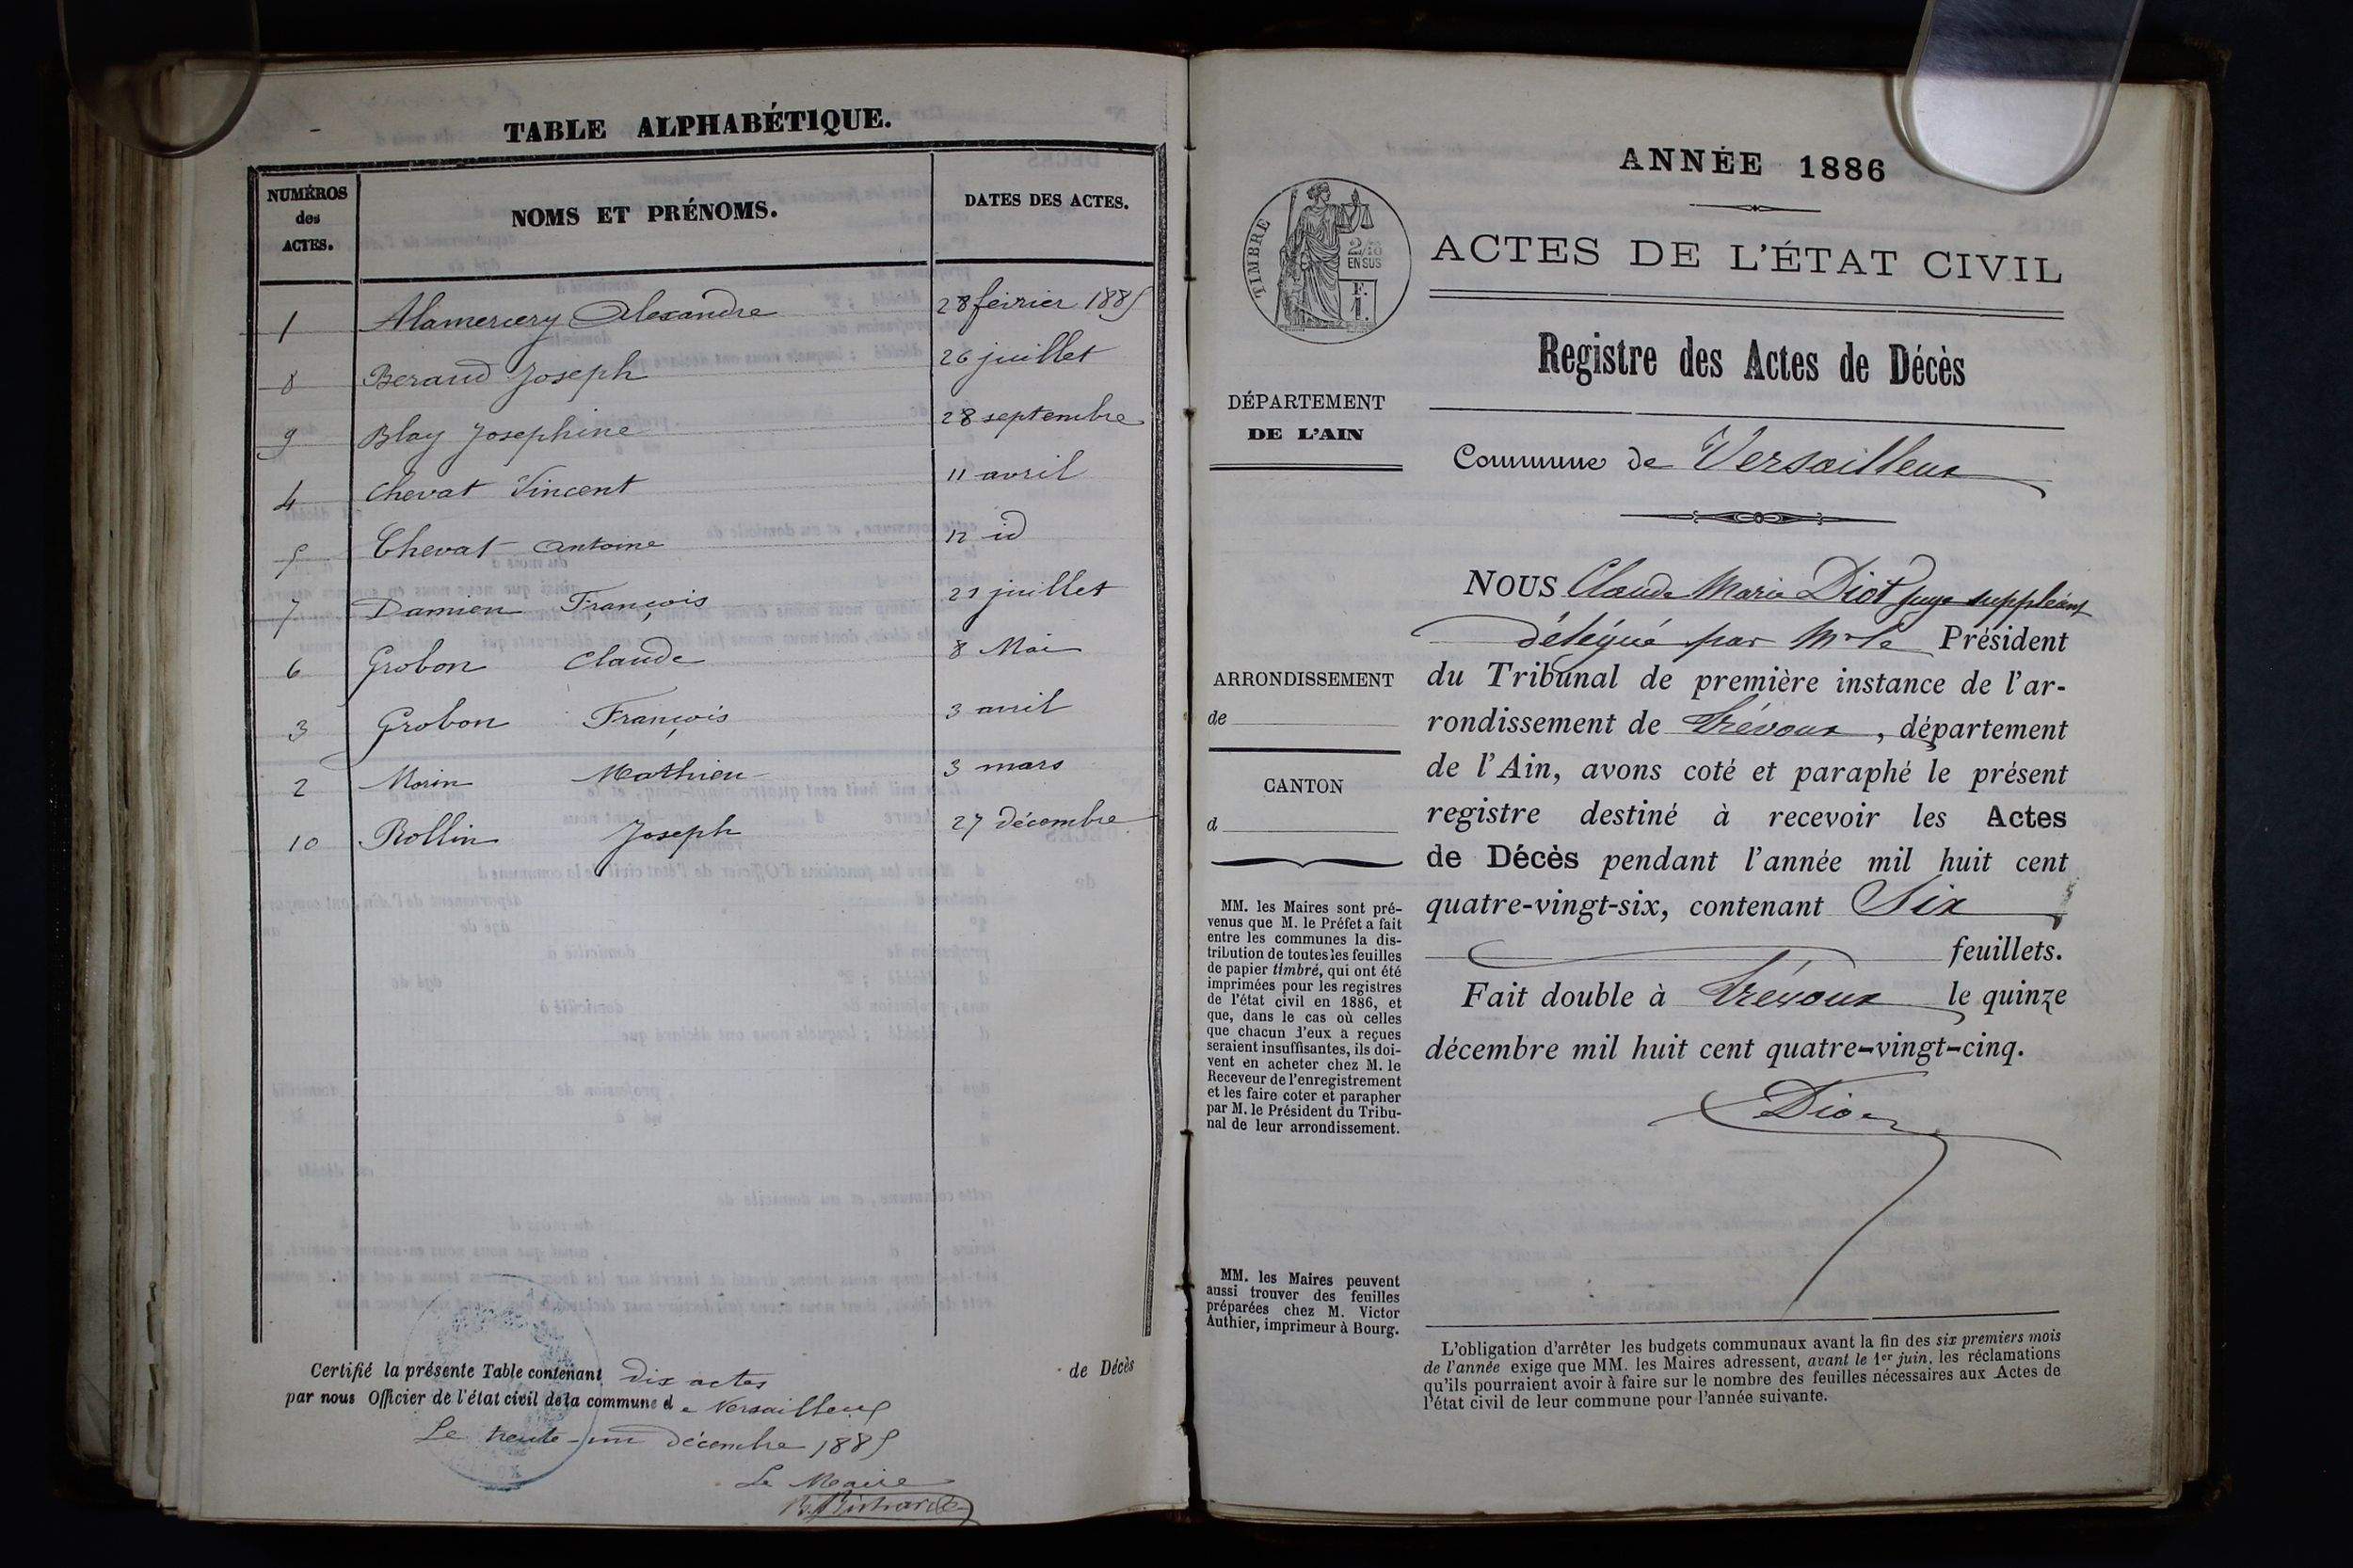 TABLE ALPHABÉTIQUE.
NUMÉROS des ACTES. NOMS ET PRÉNOMS. DATES DES ACTES.
1 Alamercery Alexandre 28 février 1885
8 Beraud Joseph 26 juillet
9 Blay Josephine 28 septembre
4 Chevat Vincent 11 avril
5 Chevat Antoine 12 id
7 Damien François 21 juillet
6 Grobon Claude 8 Mai
3 Grobon François 3 avril
2 Morin Mathieu 3 mars
10 Rollin Joseph 27 décembre
Certifié la présente Table contenant dix actes de Décès
par nous Officier de l'état civil de la commune de Versailleux
Le trente-un décembre 1885
Le Maire
B. Richard
ANNÉE 1886
TIMBRE
2/10
EN SUS
F.
1.
ACTES DE L'ÉTAT CIVIL
Registre des Actes de Décès
DÉPARTEMENT
DE L'AIN
Commune de Versailleux
NOUS Claude Marie Diot juge suppléant
délégué par Mr le Président
du Tribunal de première instance de l'ar-
rondissement de Trévoux, département
de l'Ain, avons coté et paraphé le présent
registre destiné à recevoir les Actes
de Décès pendant l'année mil huit cent
quatre-vingt-six, contenant Six
feuillets.
Fait double à Trévoux le quinze
décembre mil huit cent quatre-vingt-cinq.
Diot
ARRONDISSEMENT
de
CANTON
d
MM. les Maires sont pré-
venus que M. le Préfet a fait
entre les communes la dis-
tribution de toutes les feuilles
de papier timbré, qui ont été
imprimées pour les registres
de l'état civil en 1886, et
que, dans le cas où celles
que chacun d'eux a reçues
seraient insuffisantes, ils doi-
vent en acheter chez M. le
Receveur de l'enregistrement
et les faire coter et parapher
par M. le Président du Tribu-
nal de leur arrondissement.
MM. les Maires peuvent
aussi trouver des feuilles
préparées chez M. Victor
Authier, imprimeur à Bourg.
L'obligation d'arrêter les budgets communaux avant la fin des six premiers mois
de l'année exige que MM. les Maires adressent, avant le 1er juin, les réclamations
qu'ils pourraient avoir à faire sur le nombre des feuilles nécessaires aux Actes de
l'état civil de leur commune pour l'année suivante.